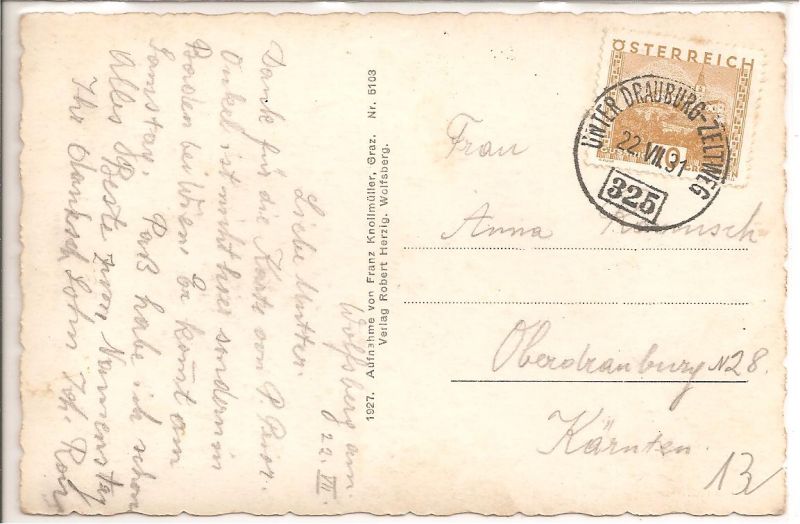 Wolfsberg am
22. VII.
Liebe Mutter
Danck für die Karte von P. Prior.
Onkel ist nicht hier sondern in
Baden bei Wien. Er kommt am
Samstag. Paß habe ich schon
Alles Beste zum Namenstag
Ihr danksch Sohn Joh.
1927. Aufnahme von Franz Knollmüller, Graz. Nr. 5103
Verlag Robert Herzig, Wolfsberg.
ÖSTERREICH
UNTER DRAUBURG-ZELTWEG
22. VII. 31
325
Frau
Anna
Oberdrauburg N 28.
Kärnten.
13